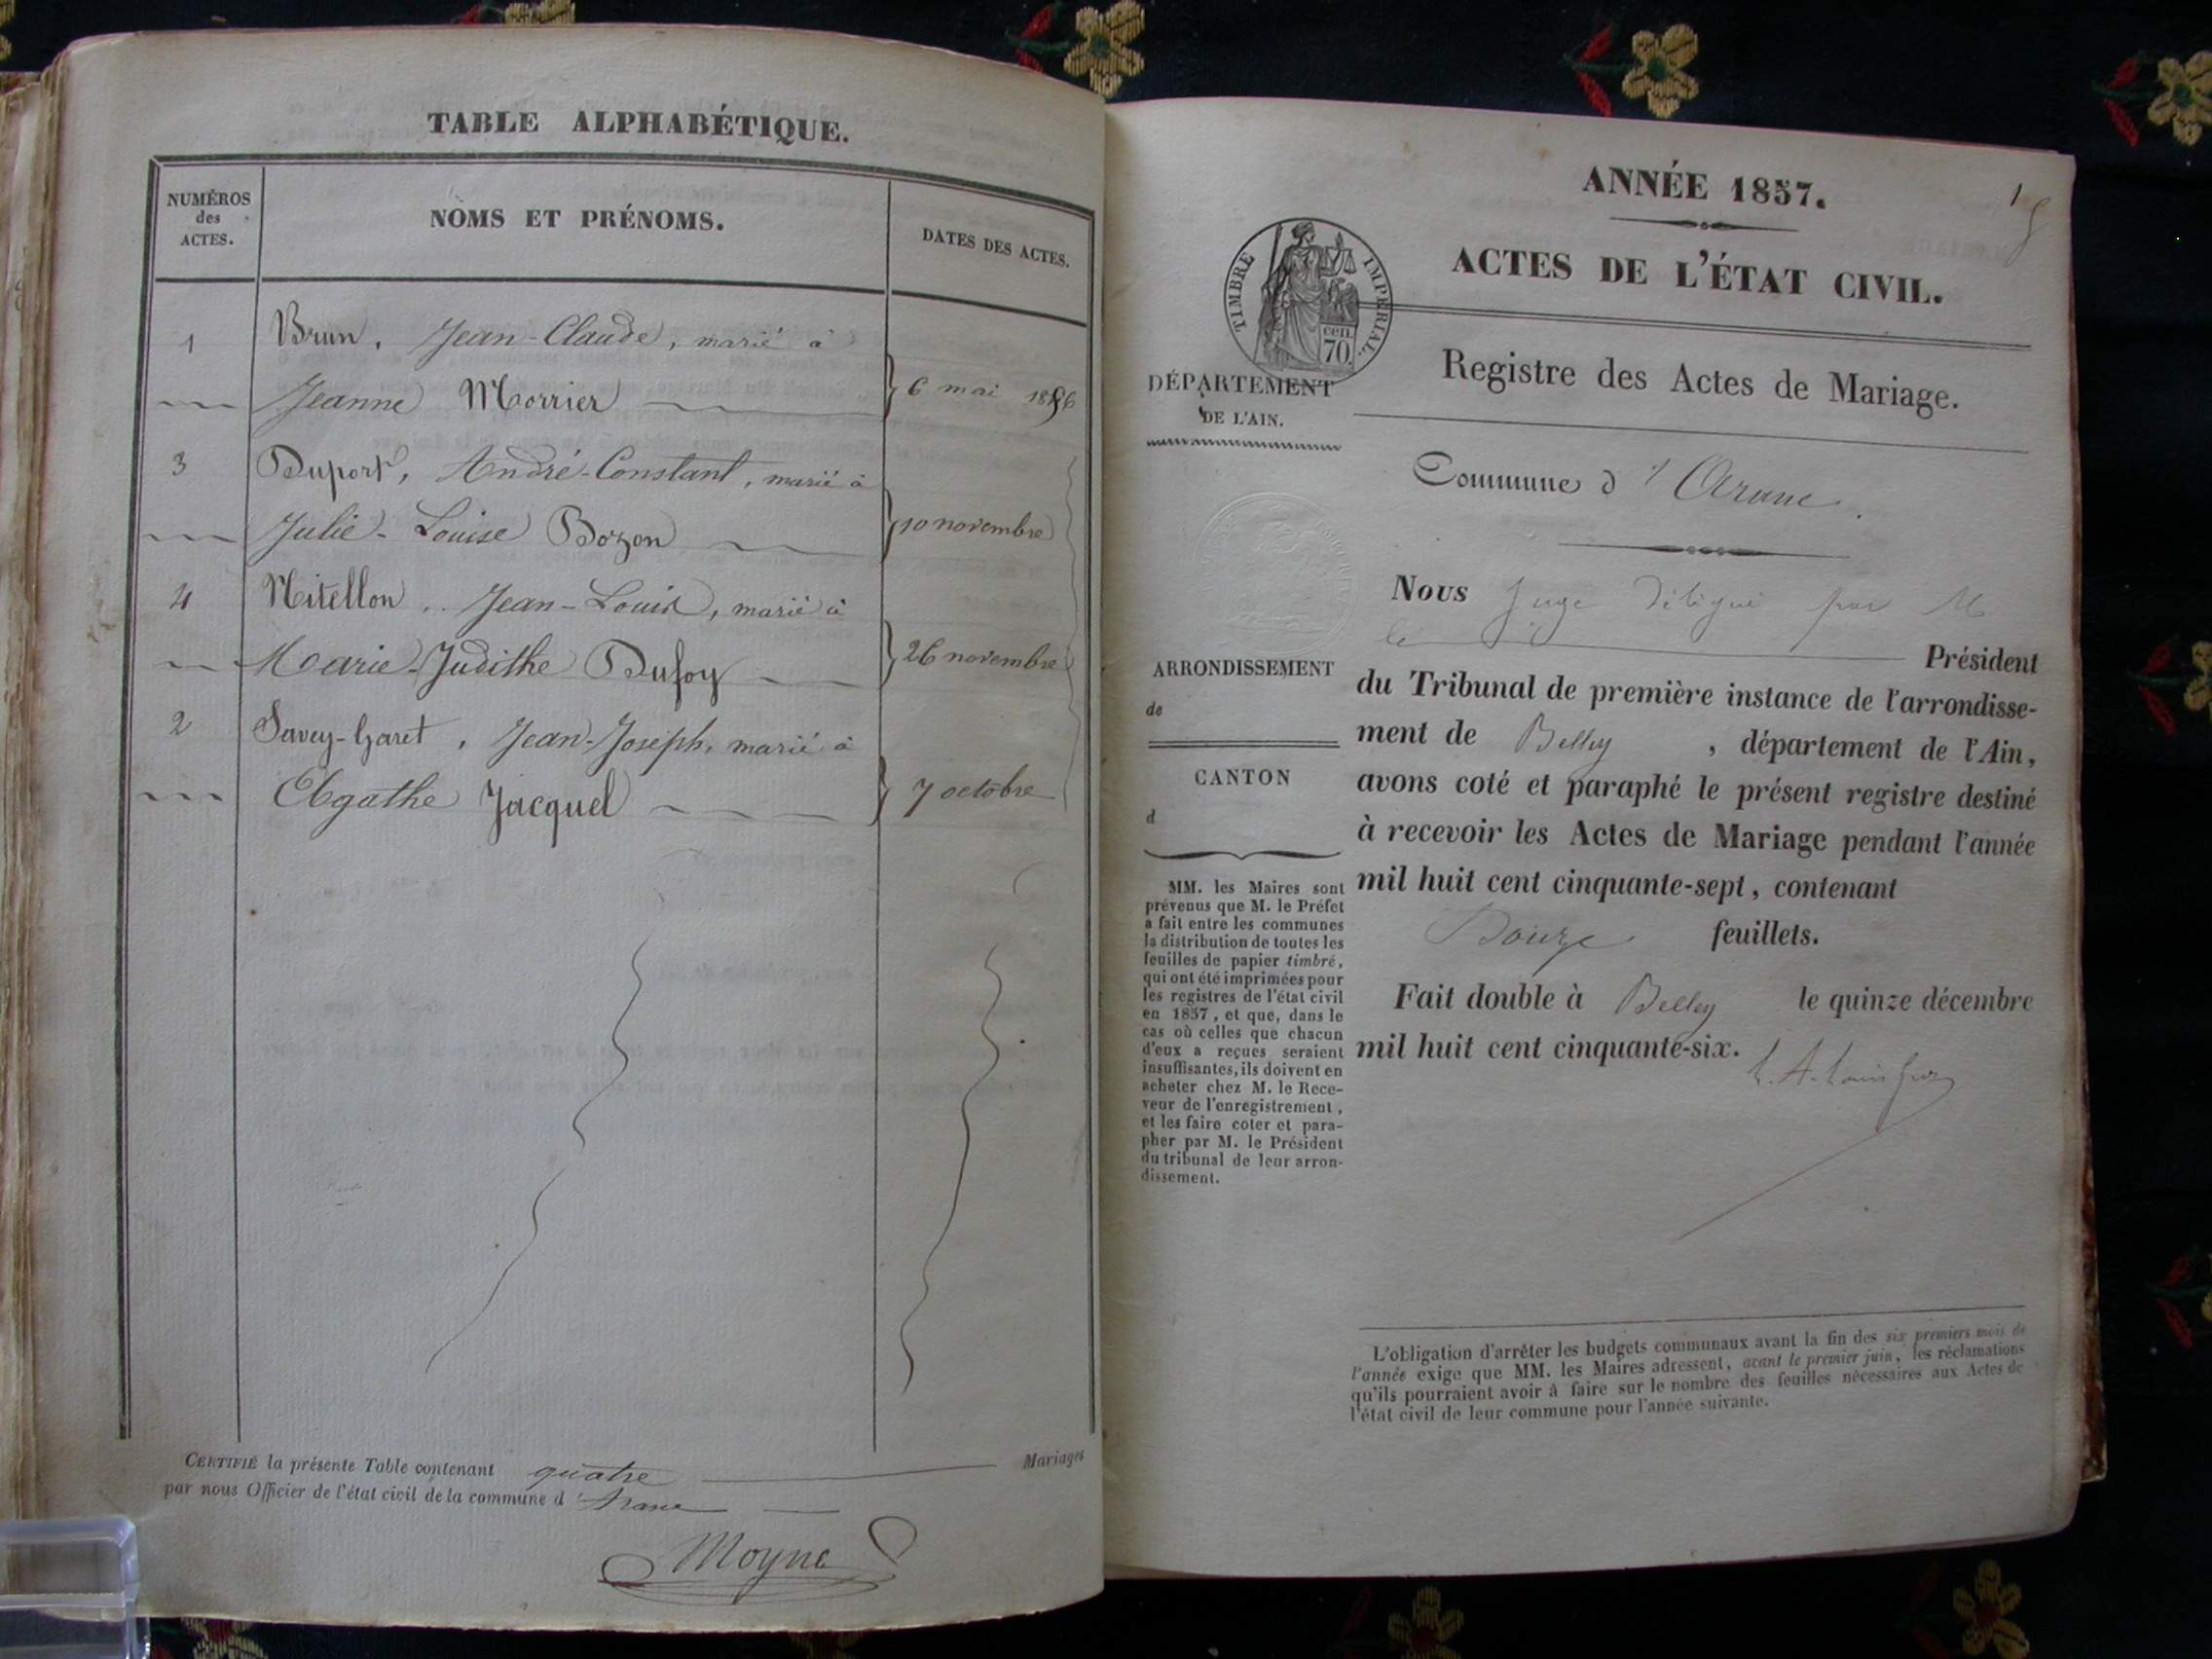 TABLE ALPHABÉTIQUE.
NUMÉROS
des
ACTES.
NOMS ET PRÉNOMS.
DATES DES ACTES.
1 Brun, Jean-Claude, marié à
Jeanne Morrier 6 mai 1856
3 Duport, André-Constant, marié à
Julie-Louise Bozon 10 novembre
4 Nitellon, Jean-Louis, marié à
Marie-Judithe Dufoy 26 novembre
2 Savey-Garet, Jean-Joseph, marié à
Agathe Jacquel 7 octobre
CERTIFIÉ la présente Table contenant quatre Mariages
par nous Officier de l'état civil de la commune d'Aranc
Moyne
1
ANNÉE 1857.
ACTES DE L'ÉTAT CIVIL.
TIMBRE IMPÉRIAL.
cen.
70
Registre des Actes de Mariage.
DÉPARTEMENT
DE L'AIN.
Commune d'Aranc.
ARRONDISSEMENT
de
CANTON
d
MM. les Maires sont
prévenus que M. le Préfet
a fait entre les communes
la distribution de toutes les
feuilles de papier timbré,
qui ont été imprimées pour
les registres de l'état civil
en 1857, et que, dans le
cas où celles que chacun
d'eux a reçues seraient
insuffisantes, ils doivent en
acheter chez M. le Rece-
veur de l'enregistrement,
et les faire coter et para-
pher par M. le Président
du tribunal de leur arron-
dissement.
Nous Juge délégué par M
le Président
du Tribunal de première instance de l'arrondisse-
ment de Belley, département de l'Ain,
avons coté et paraphé le présent registre destiné
à recevoir les Actes de Mariage pendant l'année
mil huit cent cinquante-sept, contenant
Douze feuillets.
Fait double à Belley le quinze décembre
mil huit cent cinquante-six.
L'obligation d'arrêter les budgets communaux avant la fin des six premiers mois de
l'année exige que MM. les Maires adressent, avant le premier juin, les réclamations
qu'ils pourraient avoir à faire sur le nombre des feuilles nécessaires aux Actes de
l'état civil de leur commune pour l'année suivante.